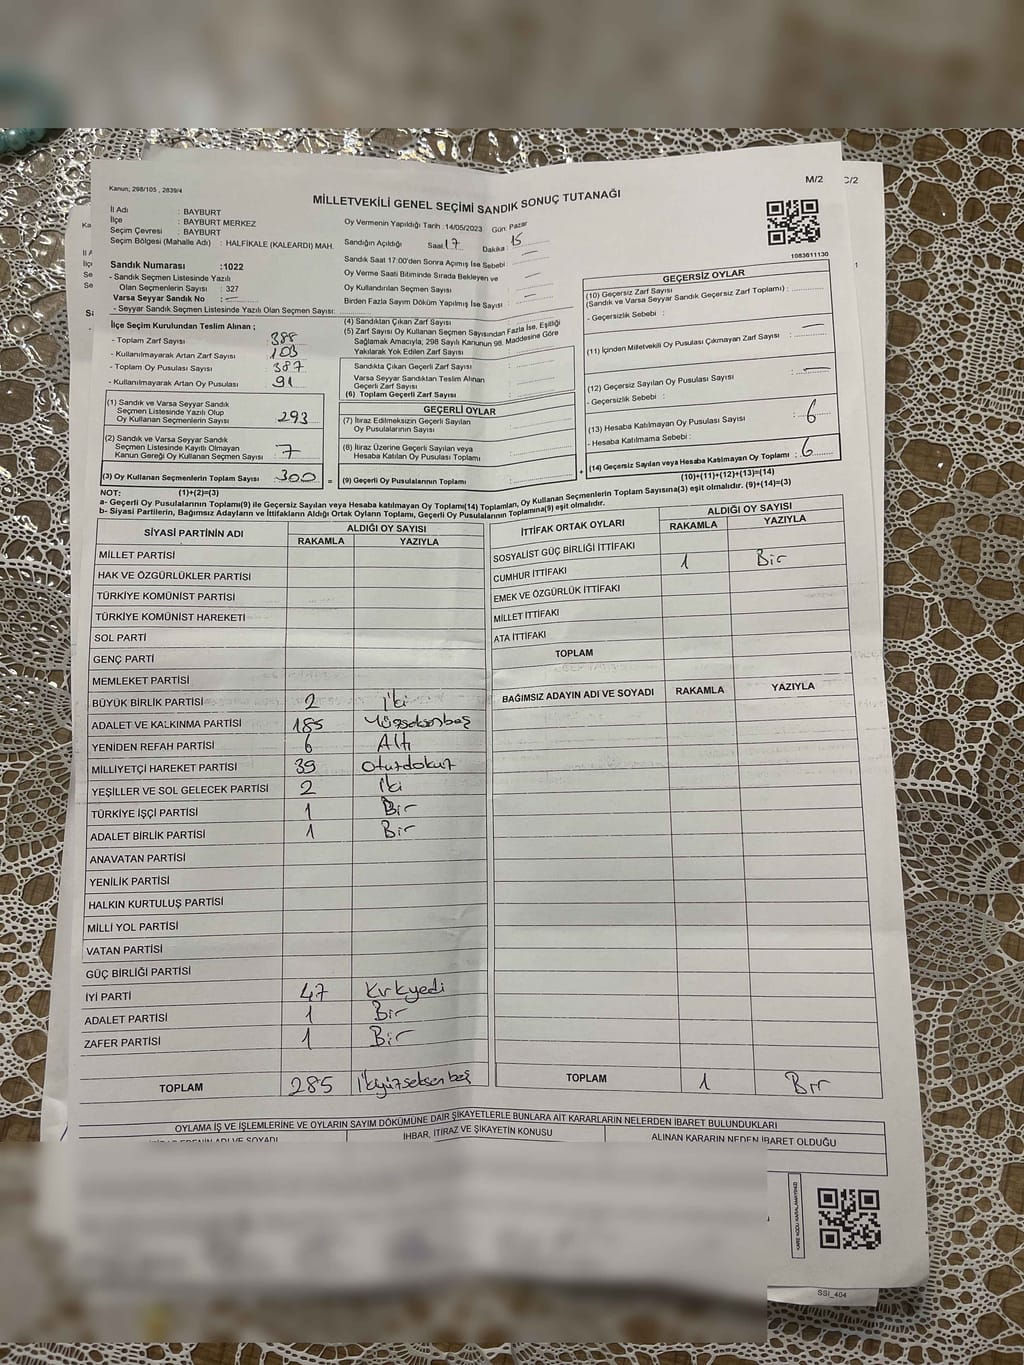 Kanun; 298/105 , 2839/4
M/2
C/2
MİLLETVEKİLİ GENEL SEÇİMİ SANDIK SONUÇ TUTANAĞI
İl Adı : BAYBURT
İlçe : BAYBURT MERKEZ
Seçim Çevresi : BAYBURT
Seçim Bölgesi (Mahalle Adı) : HALFİKALE (KALEARDI) MAH.
Oy Vermenin Yapıldığı Tarih :14/05/2023 Gün: Pazar
Sandığın Açıldığı Saat 17 Dakika : 15
Sandık Saat 17:00'den Sonra Açımış İse Sebebi :
Oy Verme Saati Bitiminde Sırada Bekleyen ve
Oy Kullandırılan Seçmen Sayısı :
Birden Fazla Sayım Döküm Yapılmış İse Sayısı :
1083611130
Sandık Numarası :1022
- Sandık Seçmen Listesinde Yazılı
Olan Seçmenlerin Sayısı : 327
Varsa Seyyar Sandık No :
- Seyyar Sandık Seçmen Listesinde Yazılı Olan Seçmen Sayısı:
İlçe Seçim Kurulundan Teslim Alınan ;
- Toplam Zarf Sayısı : 388
- Kullanılmayarak Artan Zarf Sayısı :
- Toplam Oy Pusulası Sayısı : 387
- Kullanılmayarak Artan Oy Pusulası : 91
(1) Sandık ve Varsa Seyyar Sandık
Seçmen Listesinde Yazılı Olup
Oy Kullanan Seçmenlerin Sayısı : 293
(2) Sandık ve Varsa Seyyar Sandık
Seçmen Listesinde Kayıtlı Olmayan
Kanun Gereği Oy Kullanan Seçmen Sayısı : 7
(3) Oy Kullanan Seçmenlerin Toplam Sayısı : 300 =
(1)+(2)=(3)
(4) Sandıktan Çıkan Zarf Sayısı
(5) Zarf Sayısı Oy Kullanan Seçmen Sayısından Fazla İse, Eşitliği
Sağlamak Amacıyla, 298 Sayılı Kanunun 98. Maddesine Göre
Yakılarak Yok Edilen Zarf Sayısı :
Sandıkta Çıkan Geçerli Zarf Sayısı :
Varsa Seyyar Sandıktan Teslim Alınan
Geçerli Zarf Sayısı :
(6) Toplam Geçerli Zarf Sayısı :
GEÇERLİ OYLAR
(7) İtiraz Edilmeksizin Geçerli Sayılan
Oy Pusulalarının Sayısı :
(8) İtiraz Üzerine Geçerli Sayılan veya
Hesaba Katılan Oy Pusulası Toplamı :
(9) Geçerli Oy Pusulalarının Toplamı : +
GEÇERSİZ OYLAR
(10) Geçersiz Zarf Sayısı
(Sandık ve Varsa Seyyar Sandık Geçersiz Zarf Toplamı) :
- Geçersizlik Sebebi :
(11) İçinden Milletvekili Oy Pusulası Çıkmayan Zarf Sayısı :
(12) Geçersiz Sayılan Oy Pusulası Sayısı :
- Geçersizlik Sebebi :
(13) Hesaba Katılmayan Oy Pusulası Sayısı : 6
- Hesaba Katılmama Sebebi :
(14) Geçersiz Sayılan veya Hesaba Katılmayan Oy Toplamı : 6
(10)+(11)+(12)+(13)=(14)
NOT:
a- Geçerli Oy Pusulalarının Toplamı(9) ile Geçersiz Sayılan veya Hesaba katılmayan Oy Toplamı(14) Toplamları, Oy Kullanan Seçmenlerin Toplam Sayısına(3) eşit olmalıdır. (9)+(14)=(3)
b- Siyasi Partilerin, Bağımsız Adayların ve İttifakların Aldığı Ortak Oyların Toplamı, Geçerli Oy Pusulalarının Toplamına(9) eşit olmalıdır.
SİYASİ PARTİNİN ADI ALDIĞI OY SAYISI
RAKAMLA YAZIYLA
MİLLET PARTİSİ
HAK VE ÖZGÜRLÜKLER PARTİSİ
TÜRKİYE KOMÜNİST PARTİSİ
TÜRKİYE KOMÜNİST HAREKETİ
SOL PARTİ
GENÇ PARTİ
MEMLEKET PARTİSİ
BÜYÜK BİRLİK PARTİSİ 2 iki
ADALET VE KALKINMA PARTİSİ 185 Yüzseksenbeş
YENİDEN REFAH PARTİSİ 6 Altı
MİLLİYETÇİ HAREKET PARTİSİ 39 Oturdokuz
YEŞİLLER VE SOL GELECEK PARTİSİ 2 iki
TÜRKİYE İŞÇİ PARTİSİ 1 Bir
ADALET BİRLİK PARTİSİ 1 Bir
ANAVATAN PARTİSİ
YENİLİK PARTİSİ
HALKIN KURTULUŞ PARTİSİ
MİLLİ YOL PARTİSİ
VATAN PARTİSİ
GÜÇ BİRLİĞİ PARTİSİ
İYİ PARTİ 47 Kırkyedi
ADALET PARTİSİ 1 Bir
ZAFER PARTİSİ 1 Bir
TOPLAM 285 İkiyüzseksenbeş
İTTİFAK ORTAK OYLARI ALDIĞI OY SAYISI
RAKAMLA YAZIYLA
SOSYALİST GÜÇ BİRLİĞİ İTTİFAKI
CUMHUR İTTİFAKI 1 Bir
EMEK VE ÖZGÜRLÜK İTTİFAKI
MİLLET İTTİFAKI
ATA İTTİFAKI
TOPLAM
BAĞIMSIZ ADAYIN ADI VE SOYADI RAKAMLA YAZIYLA
TOPLAM 1 Bir
OYLAMA İŞ VE İŞLEMLERİNE VE OYLARIN SAYIM DÖKÜMÜNE DAİR ŞİKAYETLERLE BUNLARA AİT KARARLARIN NELERDEN İBARET BULUNDUKLARI
İHBAR, İTİRAZ VE ŞİKAYETİN KONUSU
ALINAN KARARIN NEDEN İBARET OLDUĞU
KARE KODU KARALAMAYINIZ!
SSI_404